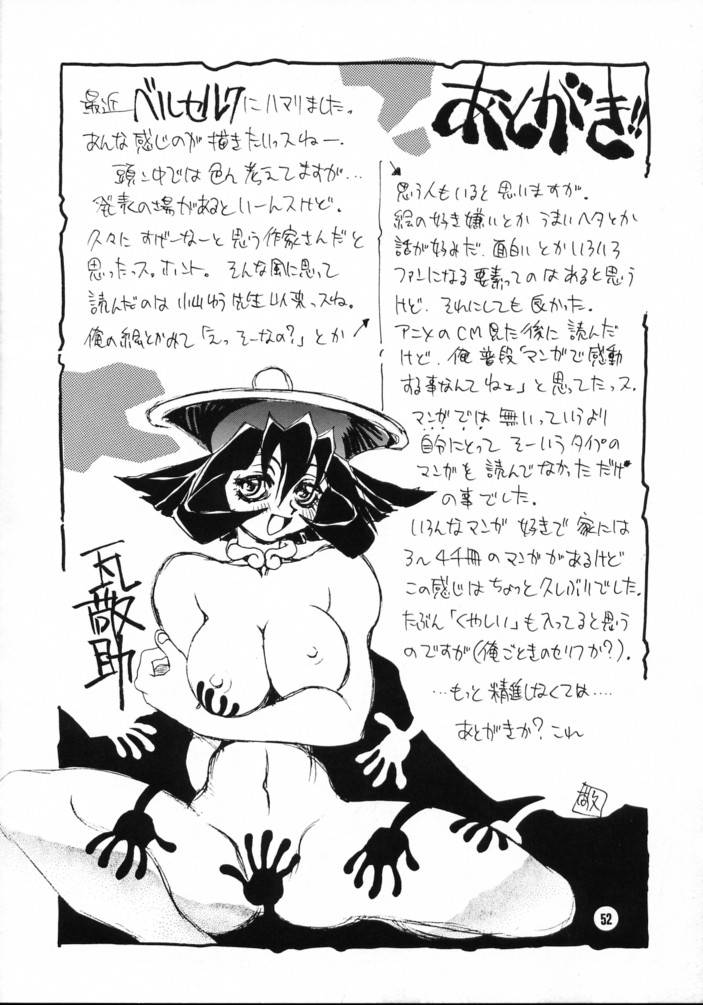 あとがき!!
最近ベルセルクにハマりました。
あんな感じのが描きたいっスねー。
頭ン中では色ん考えてますが…
発表の場があるといーんスけど。
久々にすげーなーと思う作家さんだと
思ったっス。ホント。そんな風に思って
読んだのは小山ゆう先生以来っスね。
俺の絵とかみて「えっそーなの?」とか
思う人もいると思いますが。
絵の好き嫌いとかうまいヘタとか
話が好みだ、面白いとかいろいろ
ファンになる要素ってのはあると思う
けど、それにしても良かった。
アニメのCM見た後に読んだ
けど、俺普段「マンガで感動
する事なんてねェ」と思ってたっス。
マンガでは無いっていうより
自分にとってそーいうタイプの
マンガを読んでなかっただけ
の事でした。
いろんなマンガ好きで家には
3〜4千冊のマンガがあるけど
この感じはちょっと久しぶりでした。
たぶん「くやしい」も入ってると思う
のですが(俺ごときのセリフか?)。
…もっと精進しなくては….
あとがきか?これ
敬
助
52